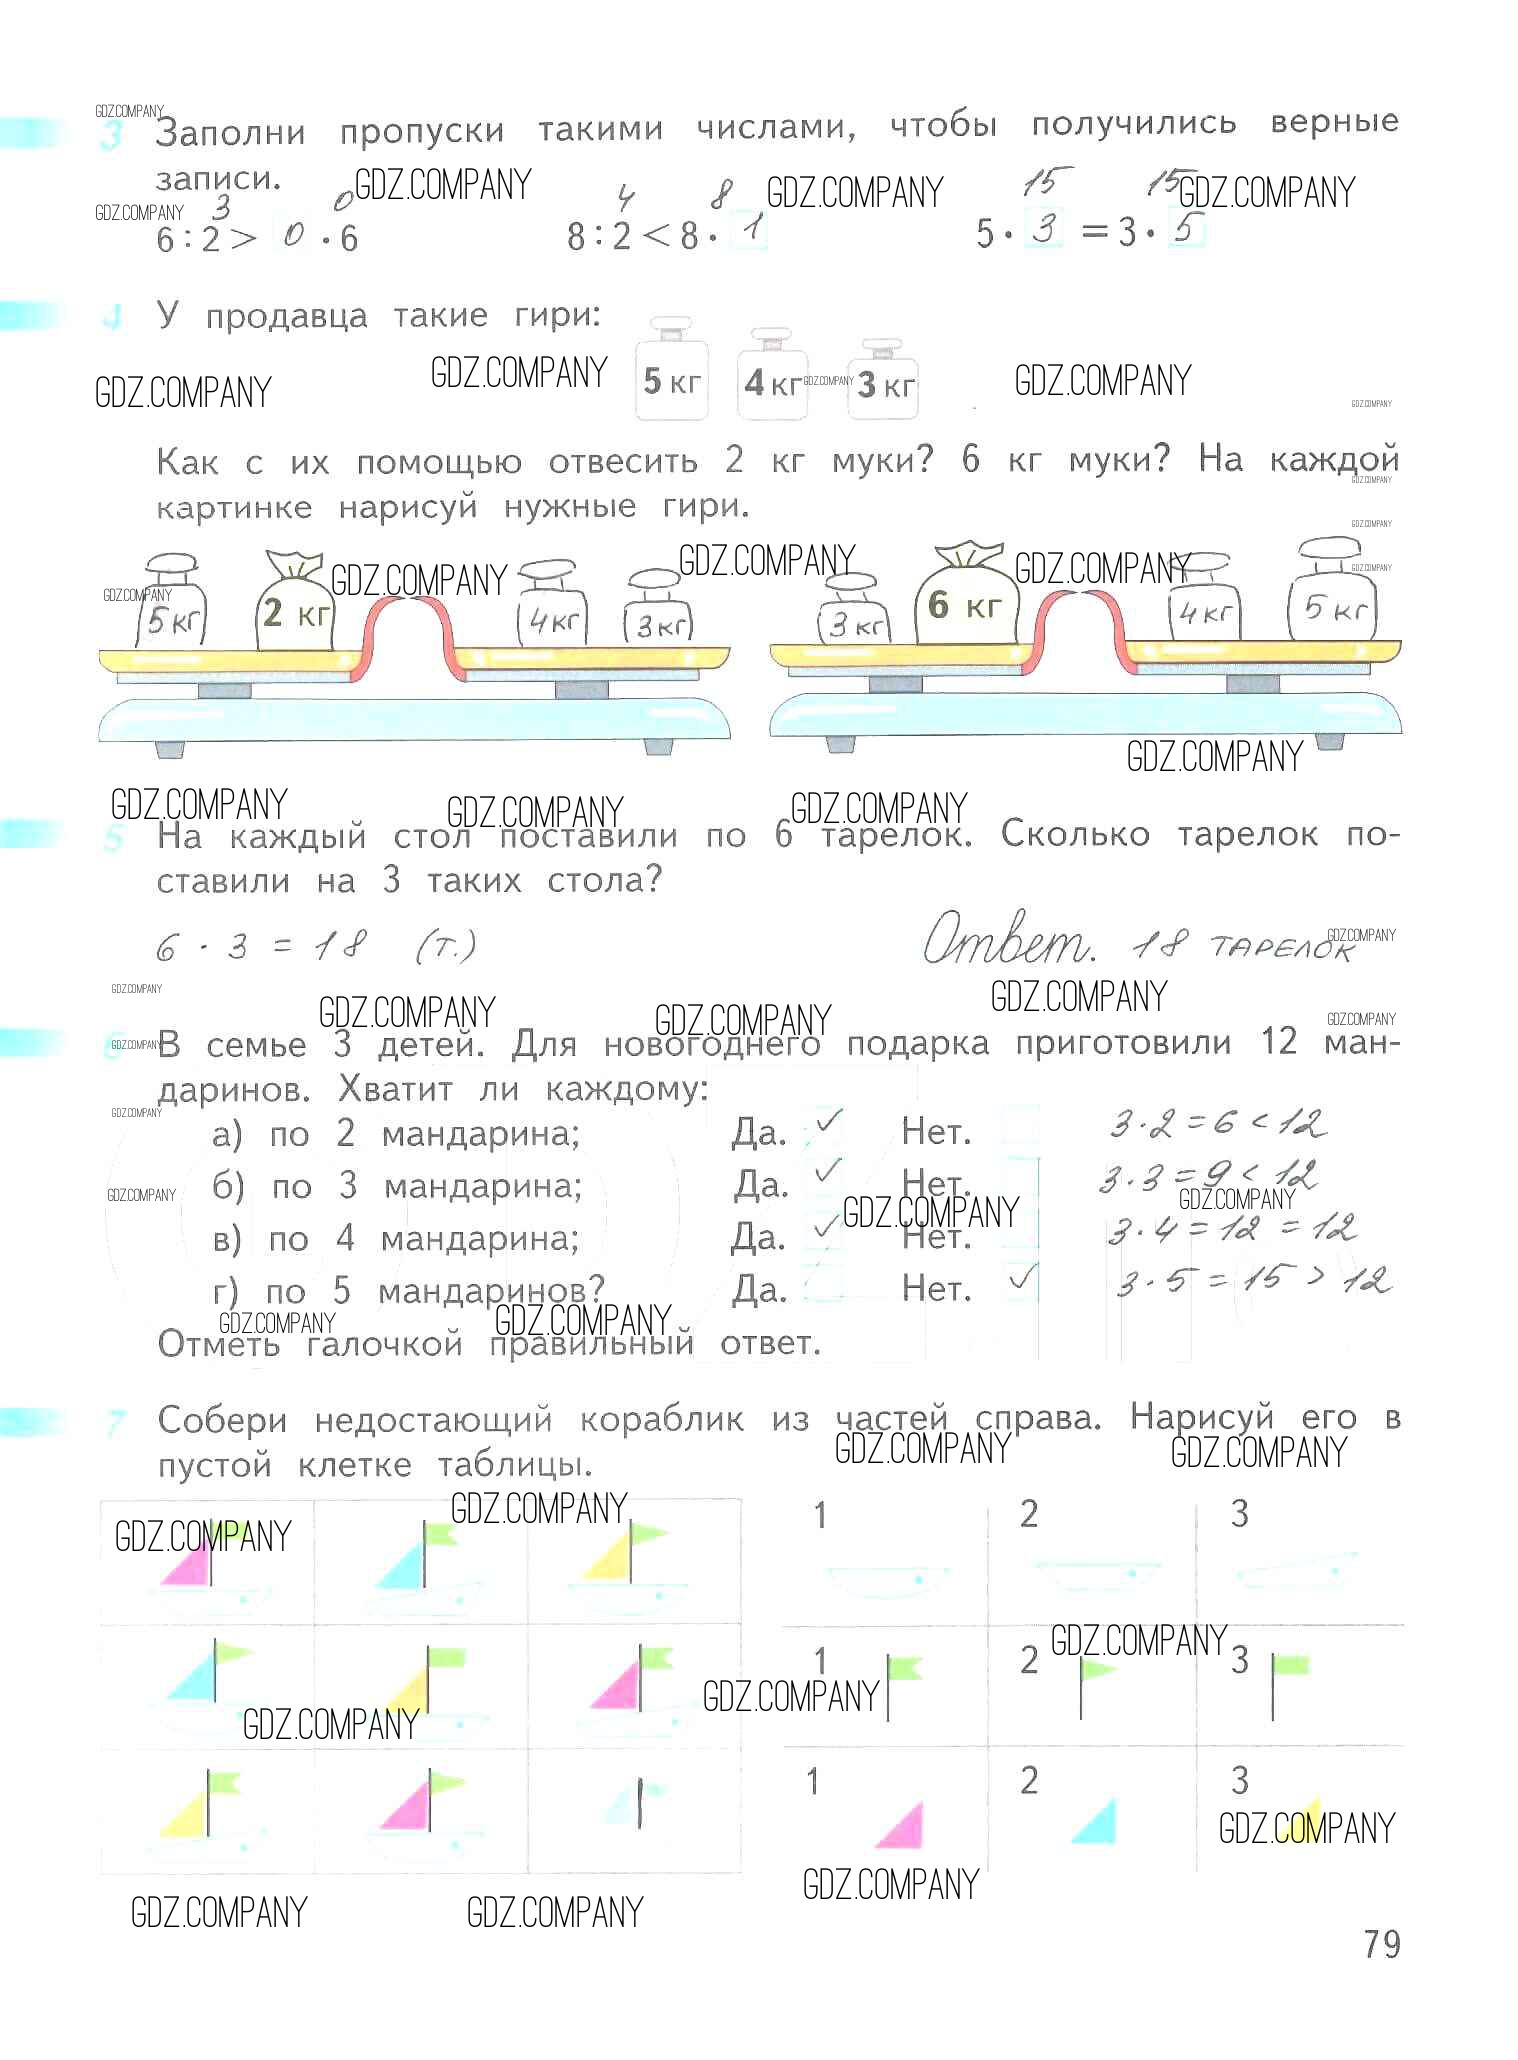 GDZ.COMPANY
3 Заполни пропуски такими числами, чтобы получились верные
записи.
GDZ.COMPANY GDZ.COMPANY GDZ.COMPANY
GDZ.COMPANY
3 0 4 8 15 15
6 : 2 > 0 · 6 8 : 2 < 8 · 1 5 · 3 = 3 · 5
4 У продавца такие гири:
5 кг 4 кг 3 кг
GDZ.COMPANY GDZ.COMPANY GDZ.COMPANY GDZ.COMPANY
GDZ.COMPANY
Как с их помощью отвесить 2 кг муки? 6 кг муки? На каждой
GDZ.COMPANY
картинке нарисуй нужные гири.
GDZ.COMPANY
GDZ.COMPANY GDZ.COMPANY GDZ.COMPANY GDZ.COMPANY
GDZ.COMPANY
5 кг 2 кг 4 кг 3 кг 3 кг 6 кг 4 кг 5 кг
GDZ.COMPANY
GDZ.COMPANY GDZ.COMPANY GDZ.COMPANY
5 На каждый стол поставили по 6 тарелок. Сколько тарелок по-
ставили на 3 таких стола?
6 · 3 = 18 (т.) Ответ. 18 тарелок
GDZ.COMPANY
GDZ.COMPANY GDZ.COMPANY GDZ.COMPANY GDZ.COMPANY
GDZ.COMPANY
6 В семье 3 детей. Для новогоднего подарка приготовили 12 ман-
GDZ.COMPANY
даринов. Хватит ли каждому:
GDZ.COMPANY
а) по 2 мандарина; Да. ✓ Нет. 3 · 2 = 6 < 12
б) по 3 мандарина; Да. ✓ Нет. 3 · 3 = 9 < 12
GDZ.COMPANY GDZ.COMPANY GDZ.COMPANY
в) по 4 мандарина; Да. ✓ Нет. 3 · 4 = 12 = 12
г) по 5 мандаринов? Да. Нет. ✓ 3 · 5 = 15 > 12
GDZ.COMPANY GDZ.COMPANY
Отметь галочкой правильный ответ.
7 Собери недостающий кораблик из частей справа. Нарисуй его в
GDZ.COMPANY GDZ.COMPANY
пустой клетке таблицы.
GDZ.COMPANY GDZ.COMPANY
1 2 3
GDZ.COMPANY
1 2 3
GDZ.COMPANY GDZ.COMPANY
1 2 3
GDZ.COMPANY
GDZ.COMPANY
GDZ.COMPANY GDZ.COMPANY
79